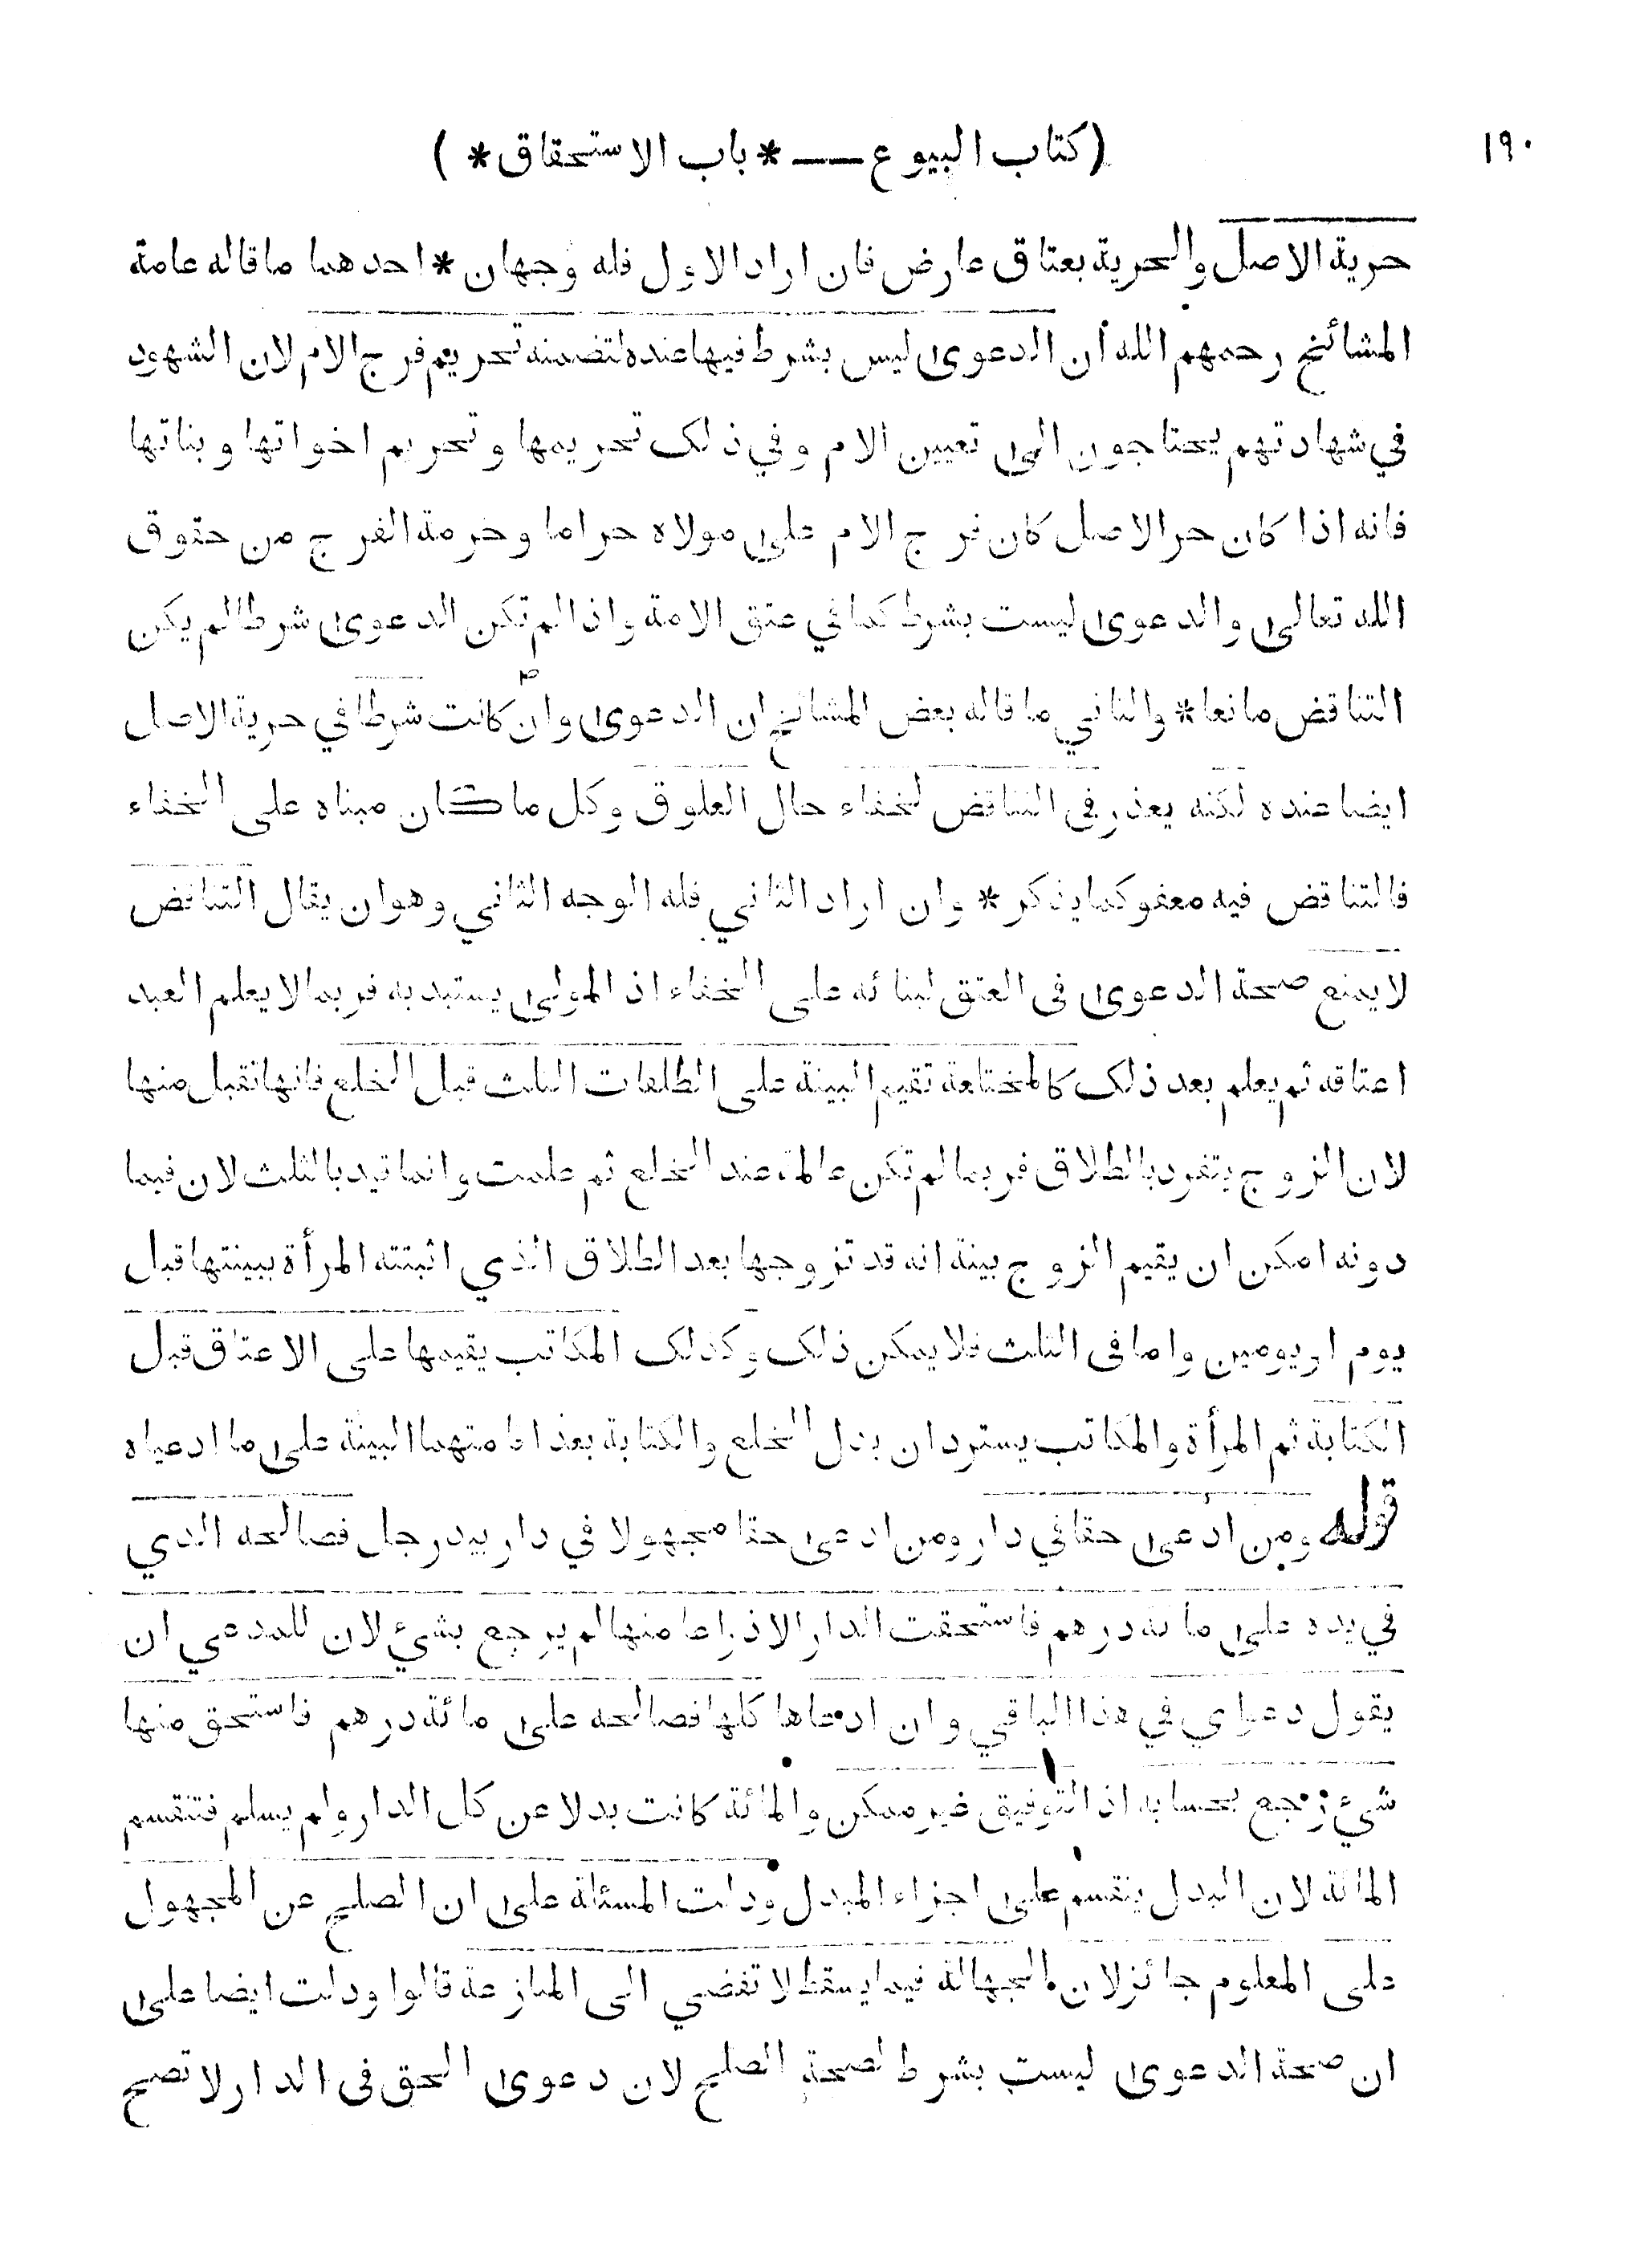 ١٩٠
(كتاب البيوع — * باب الاستحقاق *)
حرية الاصل والحرية بعتاق عارض فان اراد الاول فله وجهان * احدهما ما قاله عامة
المشائخ رحمهم الله ان الدعوى ليس بشرط فيها عنده لتضمنه تحريم فرج الام لان الشهود
في شهادتهم يحتاجون الى تعيين الام وفي ذلك تحريمها وتحريم اخواتها وبناتها
فانه اذا كان حر الاصل كان فرج الام على مولاه حراما وحرمة الفرج من حقوق
الله تعالى والدعوى ليست بشرط كما في عتق الامة واذا لم تكن الدعوى شرطا لم يكن
التناقض مانعا * والثاني ما قاله بعض المشائخ ان الدعوى وان كانت شرطا في حرية الاصل
ايضا عنده لكنه يعذر في التناقض لخفاء حال العلوق وكل ما كان مبناه على الخفاء
فالتناقض فيه معفو كما يذكر * وان اراد الثاني فله الوجه الثاني وهو ان يقال التناقض
لا يمنع صحة الدعوى في العتق لبنائه على الخفاء اذ المولى يستبد به فربما لا يعلم العبد
اعتاقه ثم يعلم بعد ذلك كالمختلعة تقيم البينة على الطلقات الثلث قبل الخلع فانها تقبل منها
لان الزوج يتفرد بالطلاق فربما لم تكن عالمة عند الخلع ثم علمت وانما قيد بالثلث لان فيما
دونه امكن ان يقيم الزوج بينة انه قد تزوجها بعد الطلاق الذي اثبتته المرأة ببينتها قبل
يوم او يومين واما في الثلث فلا يمكن ذلك وكذلك المكاتب يقيمها على الاعتاق قبل
الكتابة ثم المرأة والمكاتب يستردان بدل الخلع والكتابة بعد اقامتهما البينة على ما ادعياه
قوله ومن ادعى حقا في دار ومن ادعى حقا مجهولا في دار بيد رجل فصالحه الذي
في يده على مائة درهم فاستحقت الدار الا ذراعا منها لم يرجع بشيء لان للمدعي ان
يقول دعواي في هذا الباقي وان ادعاها كلها فصالحه على مائة درهم فاستحق منها
شيء رجع بحسابه اذ التوفيق غير ممكن والمائة كانت بدلا عن كل الدار ولم يسلم فتقسم
المائة لان البدل ينقسم على اجزاء المبدل ودلت المسئلة على ان الصلح عن المجهول
على المعلوم جائز لان الجهالة فيما يسقط لا تفضي الى المنازعة قالوا ودلت ايضا على
ان صحة الدعوى ليست بشرط لصحة الصلح لان دعوى الحق في الدار لا تصح